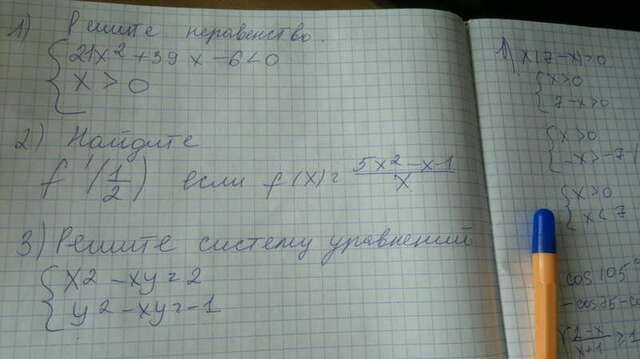 1) Решите неравенство.
21x² + 39x - 6 < 0
x > 0
2) Найдите
f'(1/2) если f(x) = 5x²-x-1/x
3) Решите систему уравнений
x2 - xy = 2
y2 - xy = -1
1) x(7-x)>0
x>0
7-x>0
x>0
-x>-7
x>0
x<7
cos 105°